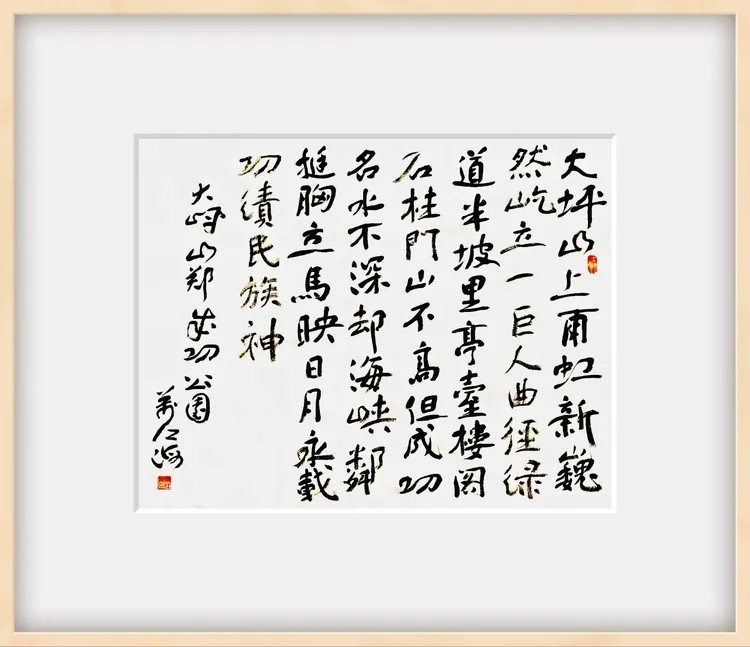 大坪山上雨虹新巍
然屹立一巨人曲徑绿
道半坡里亭臺樓阁
石柱門山不高但成功
名水不深却海峡鄰
挺胸立馬映日月永載
功績民族神
大坪山郑成功公園